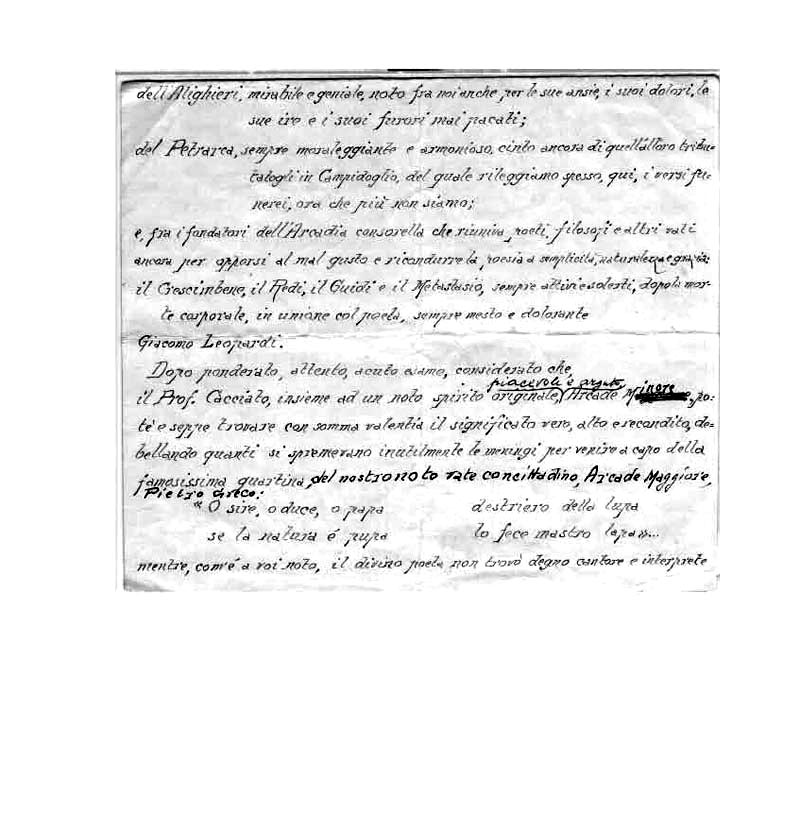 dell'Alighieri, mirabile e geniale, noto fra noi anche per le sue ansie, i suoi dolori, le
sue ire e i suoi furori mai pacati;
del Petrarca, sempre moraleggiante e armonioso, cinto ancora di quell'alloro tribu=
tatogli in Campidoglio, del quale rileggiamo spesso, qui, i versi fu=
nerei, ora che più non siamo;
e, fra i fondatori dell'Arcadia consorella che riuniva poeti, filosofi e altri vati
ancora per opporsi al mal gusto e ricondurre la poesia a semplicità, naturalezza e grazia:
il Crescimbene, il Redi, il Guidi e il Metastasio, sempre attivi e solerti, dopo la mor=
te corporale, in unione col poeta, sempre mesto e dolorante
Giacomo Leopardi.
Dopo ponderato, attento, acuto esame, considerato che,
piacevoli e arguto,
il Prof. Cacciato, insieme ad un noto spirito originale, Arcade Minore, po=
tè e seppe trovare con somma valentia il significato vero, alto e recondito, de=
bellando quanti si spremevano inutilmente le meningi per venire a capo della
famosissima quartina del nostro noto vate concittadino, Arcade Maggiore,
Pietro Greco:
"O sire, o duce, o papa destriero della lupa
se la natura é pupa lo fece mastro lapa»...
mentre, com'é a voi noto, il divino poeta non trovò degno cantore e interprete